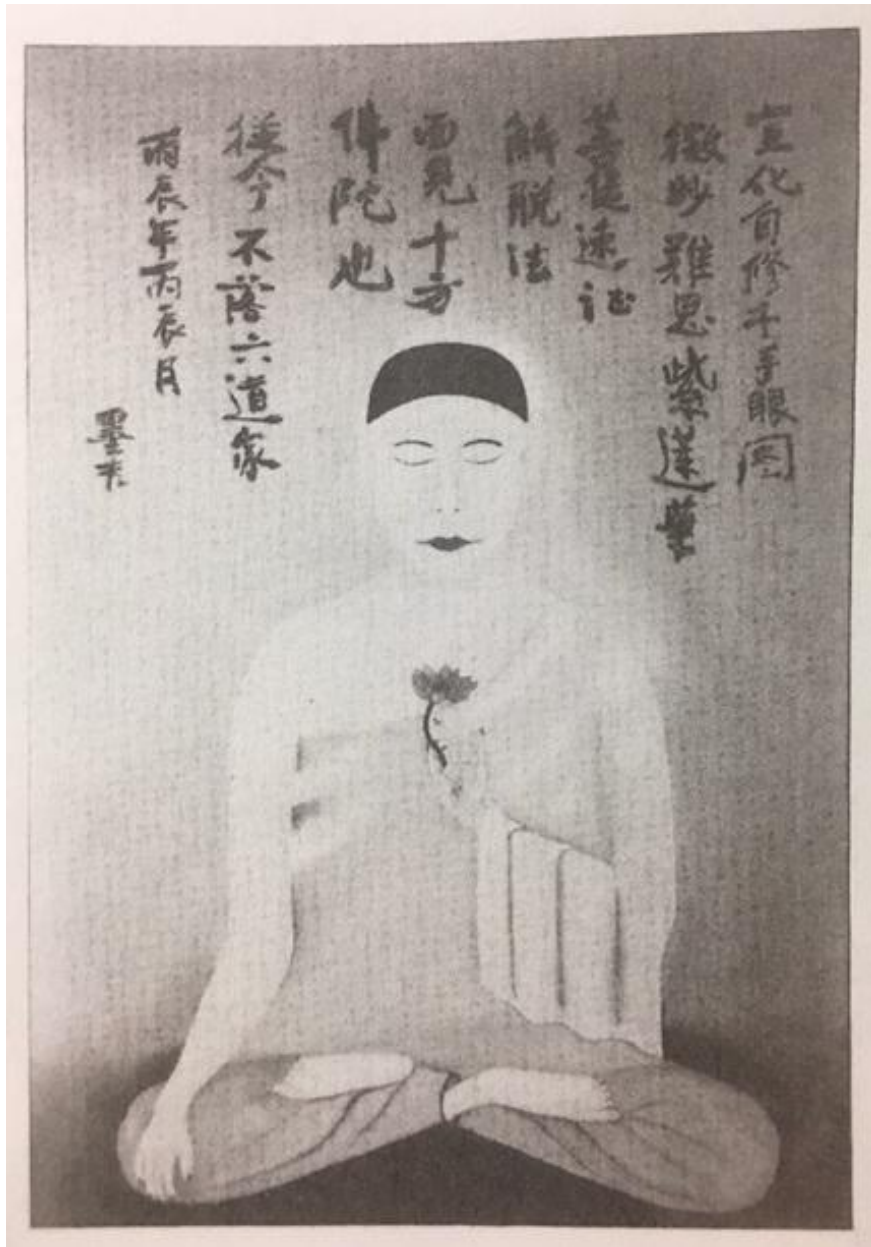 宣化自修千手眼圖
微妙難思紫蓮華
菩提速証
解脫法
面見十方
佛陀也
從今不落六道家
丙辰年丙辰月